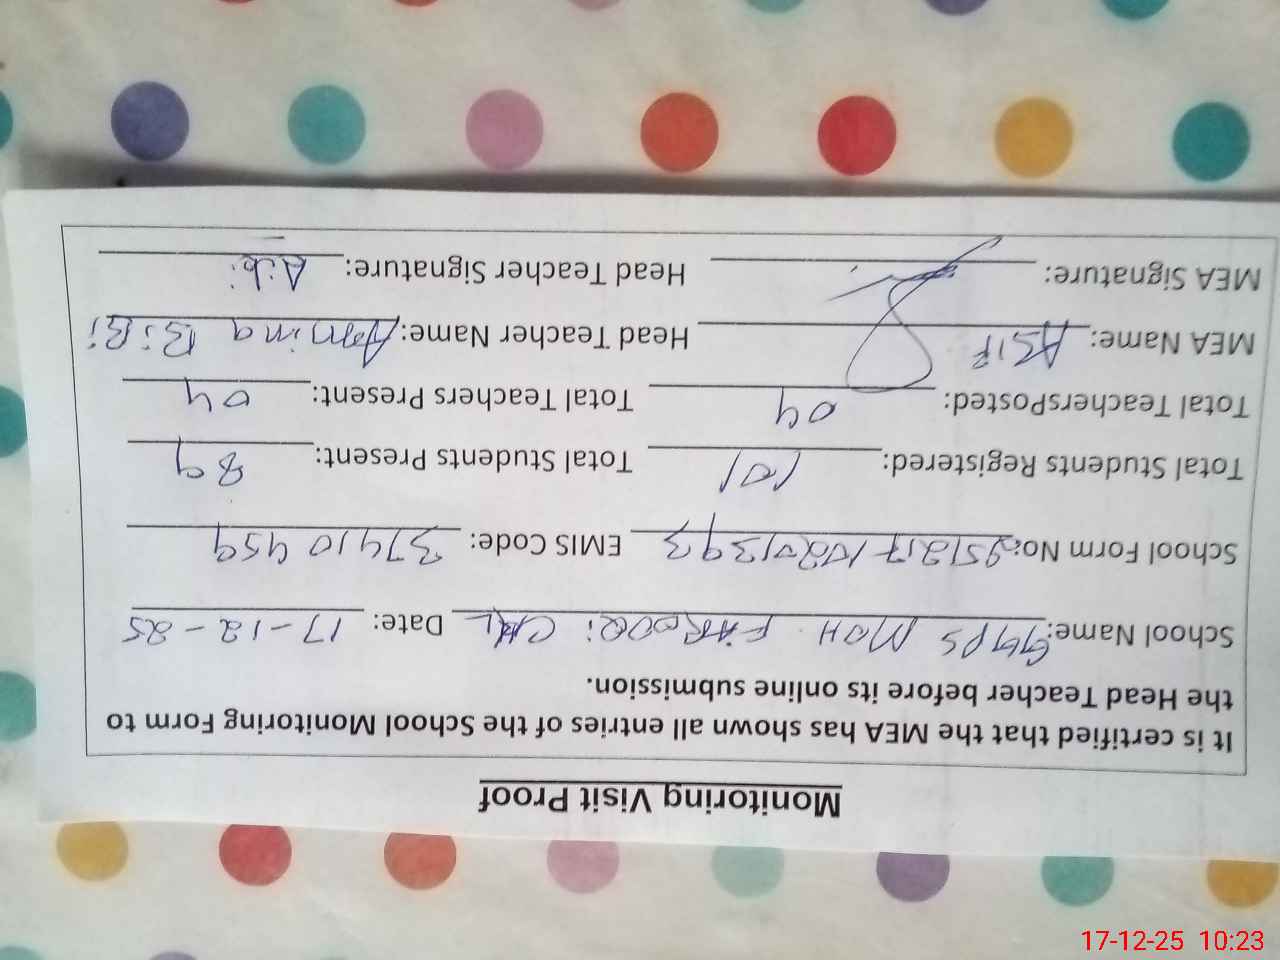 Monitoring Visit Proof
It is certified that the MEA has shown all entries of the School Monitoring Form to
the Head Teacher before its online submission.
School Name: GGPS MOH. FAROOQi CKL Date: 17-12-25
School Form No: EMIS Code: 37410459
Total Students Registered: 101 Total Students Present: 89
Total TeachersPosted: 04 Total Teachers Present: 04
MEA Name: ASIF Head Teacher Name: Aamina BiBi
MEA Signature: Head Teacher Signature:
17-12-25 10:23